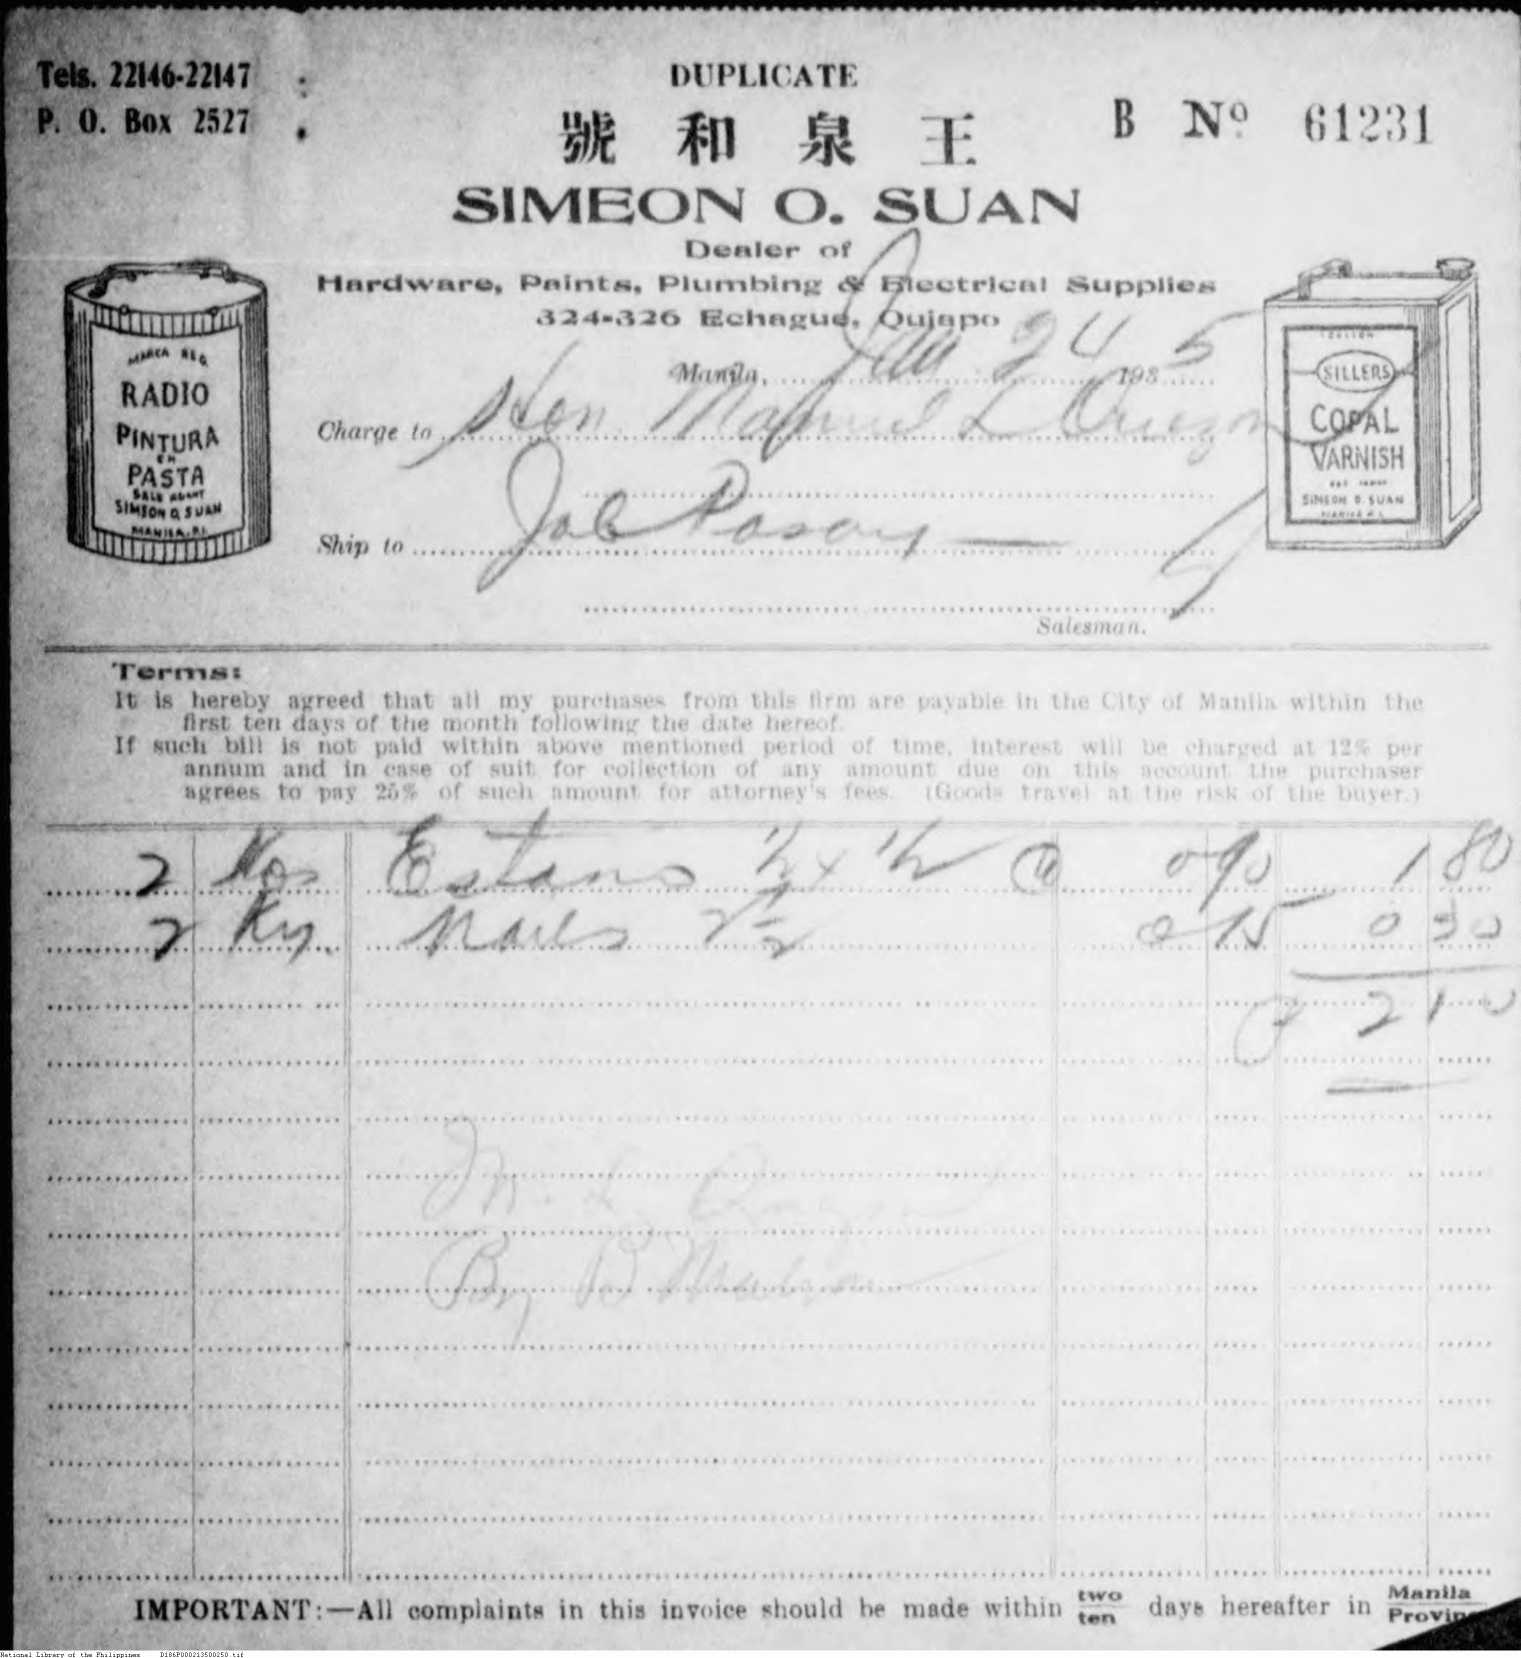 Tels. 22146-22147
P. O. Box 2527
DUPLICATE
B Nº 61231
號 和 泉 王
SIMEON O. SUAN
Dealer of
Hardware, Paints, Plumbing & Electrical Supplies
324-326 Echague, Quiapo
Manila, Jan 24 1935
Charge to Hon. Manuel L Quezon
Ship to Job Pasay
Salesman.
MARCA REG.
RADIO
PINTURA
EN
PASTA
SALE AGENT
SIMEON O. SUAN
MANILA, P.I.
1 GALLON
SILLERS
COPAL
VARNISH
SIMEON O. SUAN
MANILA P.I.
Terms:
It is hereby agreed that all my purchases from this firm are payable in the City of Manila within the
first ten days of the month following the date hereof.
If such bill is not paid within above mentioned period of time, interest will be charged at 12% per
annum and in case of suit for collection of any amount due on this account the purchaser
agrees to pay 25% of such amount for attorney's fees. (Goods travel at the risk of the buyer.)
2 Kos Estano ½ x ½ @ 0 90 1 80
2 Kg. Nails 2½ 0 15 0 30
₱ 2 10
M. L. Quezon
By B
IMPORTANT:—All complaints in this invoice should be made within two/ten days hereafter in Manila/Provin
National Library of the Philippines D186P000213500250.tif